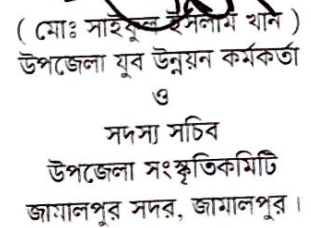 ( মোঃ সাইফুল ইসলাম খান )
উপজেলা যুব উন্নয়ন কর্মকর্তা
ও
সদস্য সচিব
উপজেলা সংস্কৃতিকমিটি
জামালপুর সদর, জামালপুর।